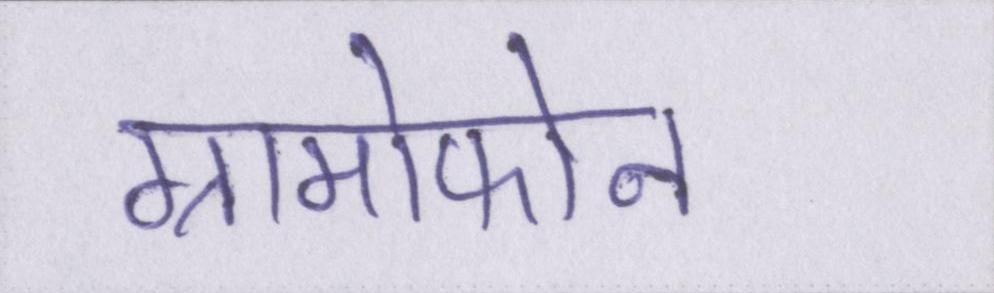 ग्रामोफोन